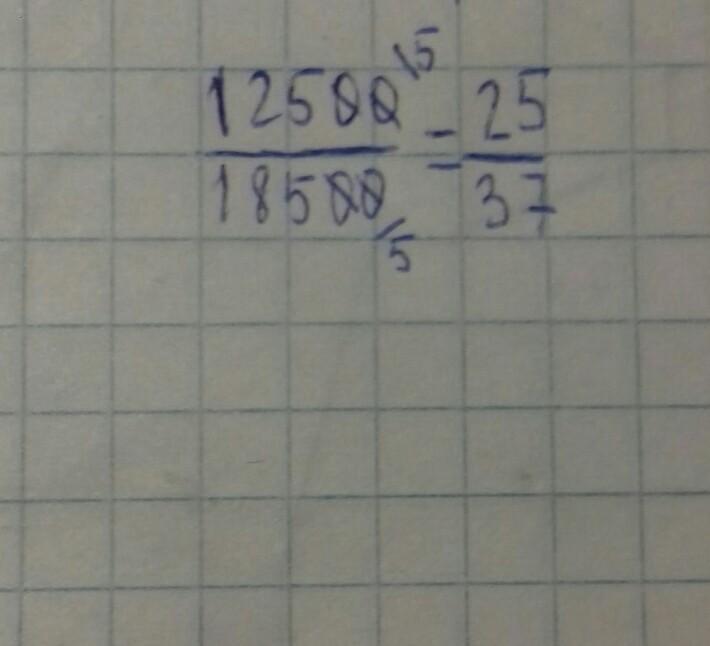 12500/5
18500/5
=
25
37